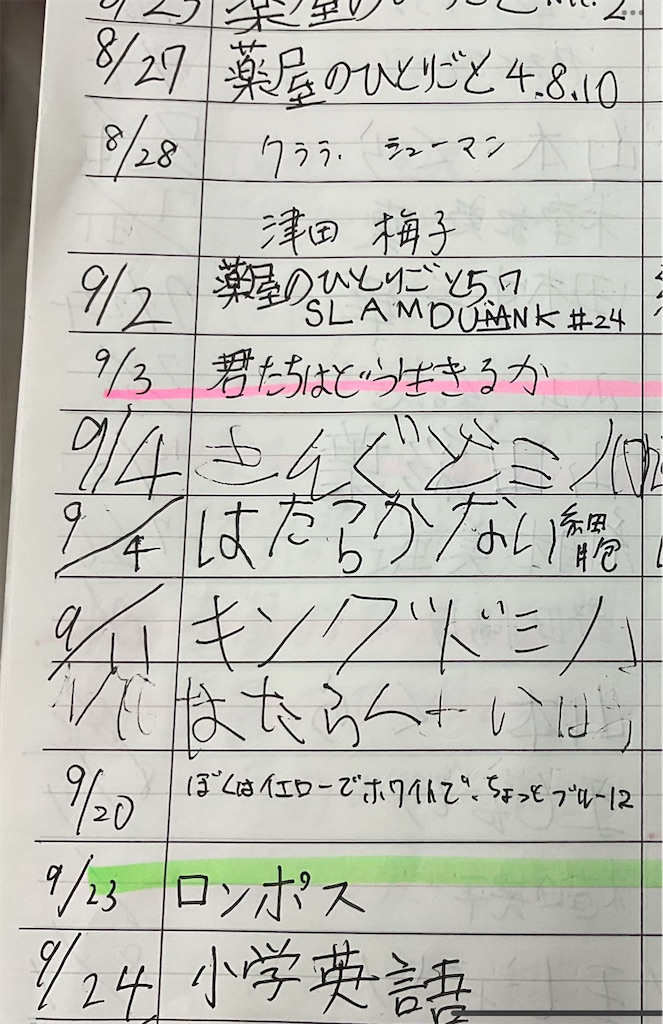 薬屋のひとりごと
8/27 薬屋のひとりごと 4.8.10
8/28 クララ.シューマン
津田 梅子
9/2 薬屋のひとりごと5 7
SLAMDUNK #24
9/3 君たちはどう生きるか
9/4 きんぐどミノ
9/4 はたらかない細胞
9/11 キングドミノ
はたらへ
9/20 ぼくはイエローでホワイトで、ちょっとブルー12
9/23 ロンポス
9/24 小学英語